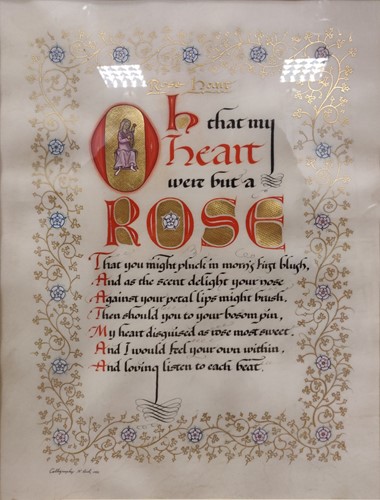 Rose Heart
Oh that my
heart
were but a
ROSE
That you might pluck in morn's first blush,
And as the scent delight your nose
Against your petal lips might brush.
Then should you to your bosom pin,
My heart disguised as rose most sweet
And I would feel your own within,
And loving listen to each beat.
Calligraphy